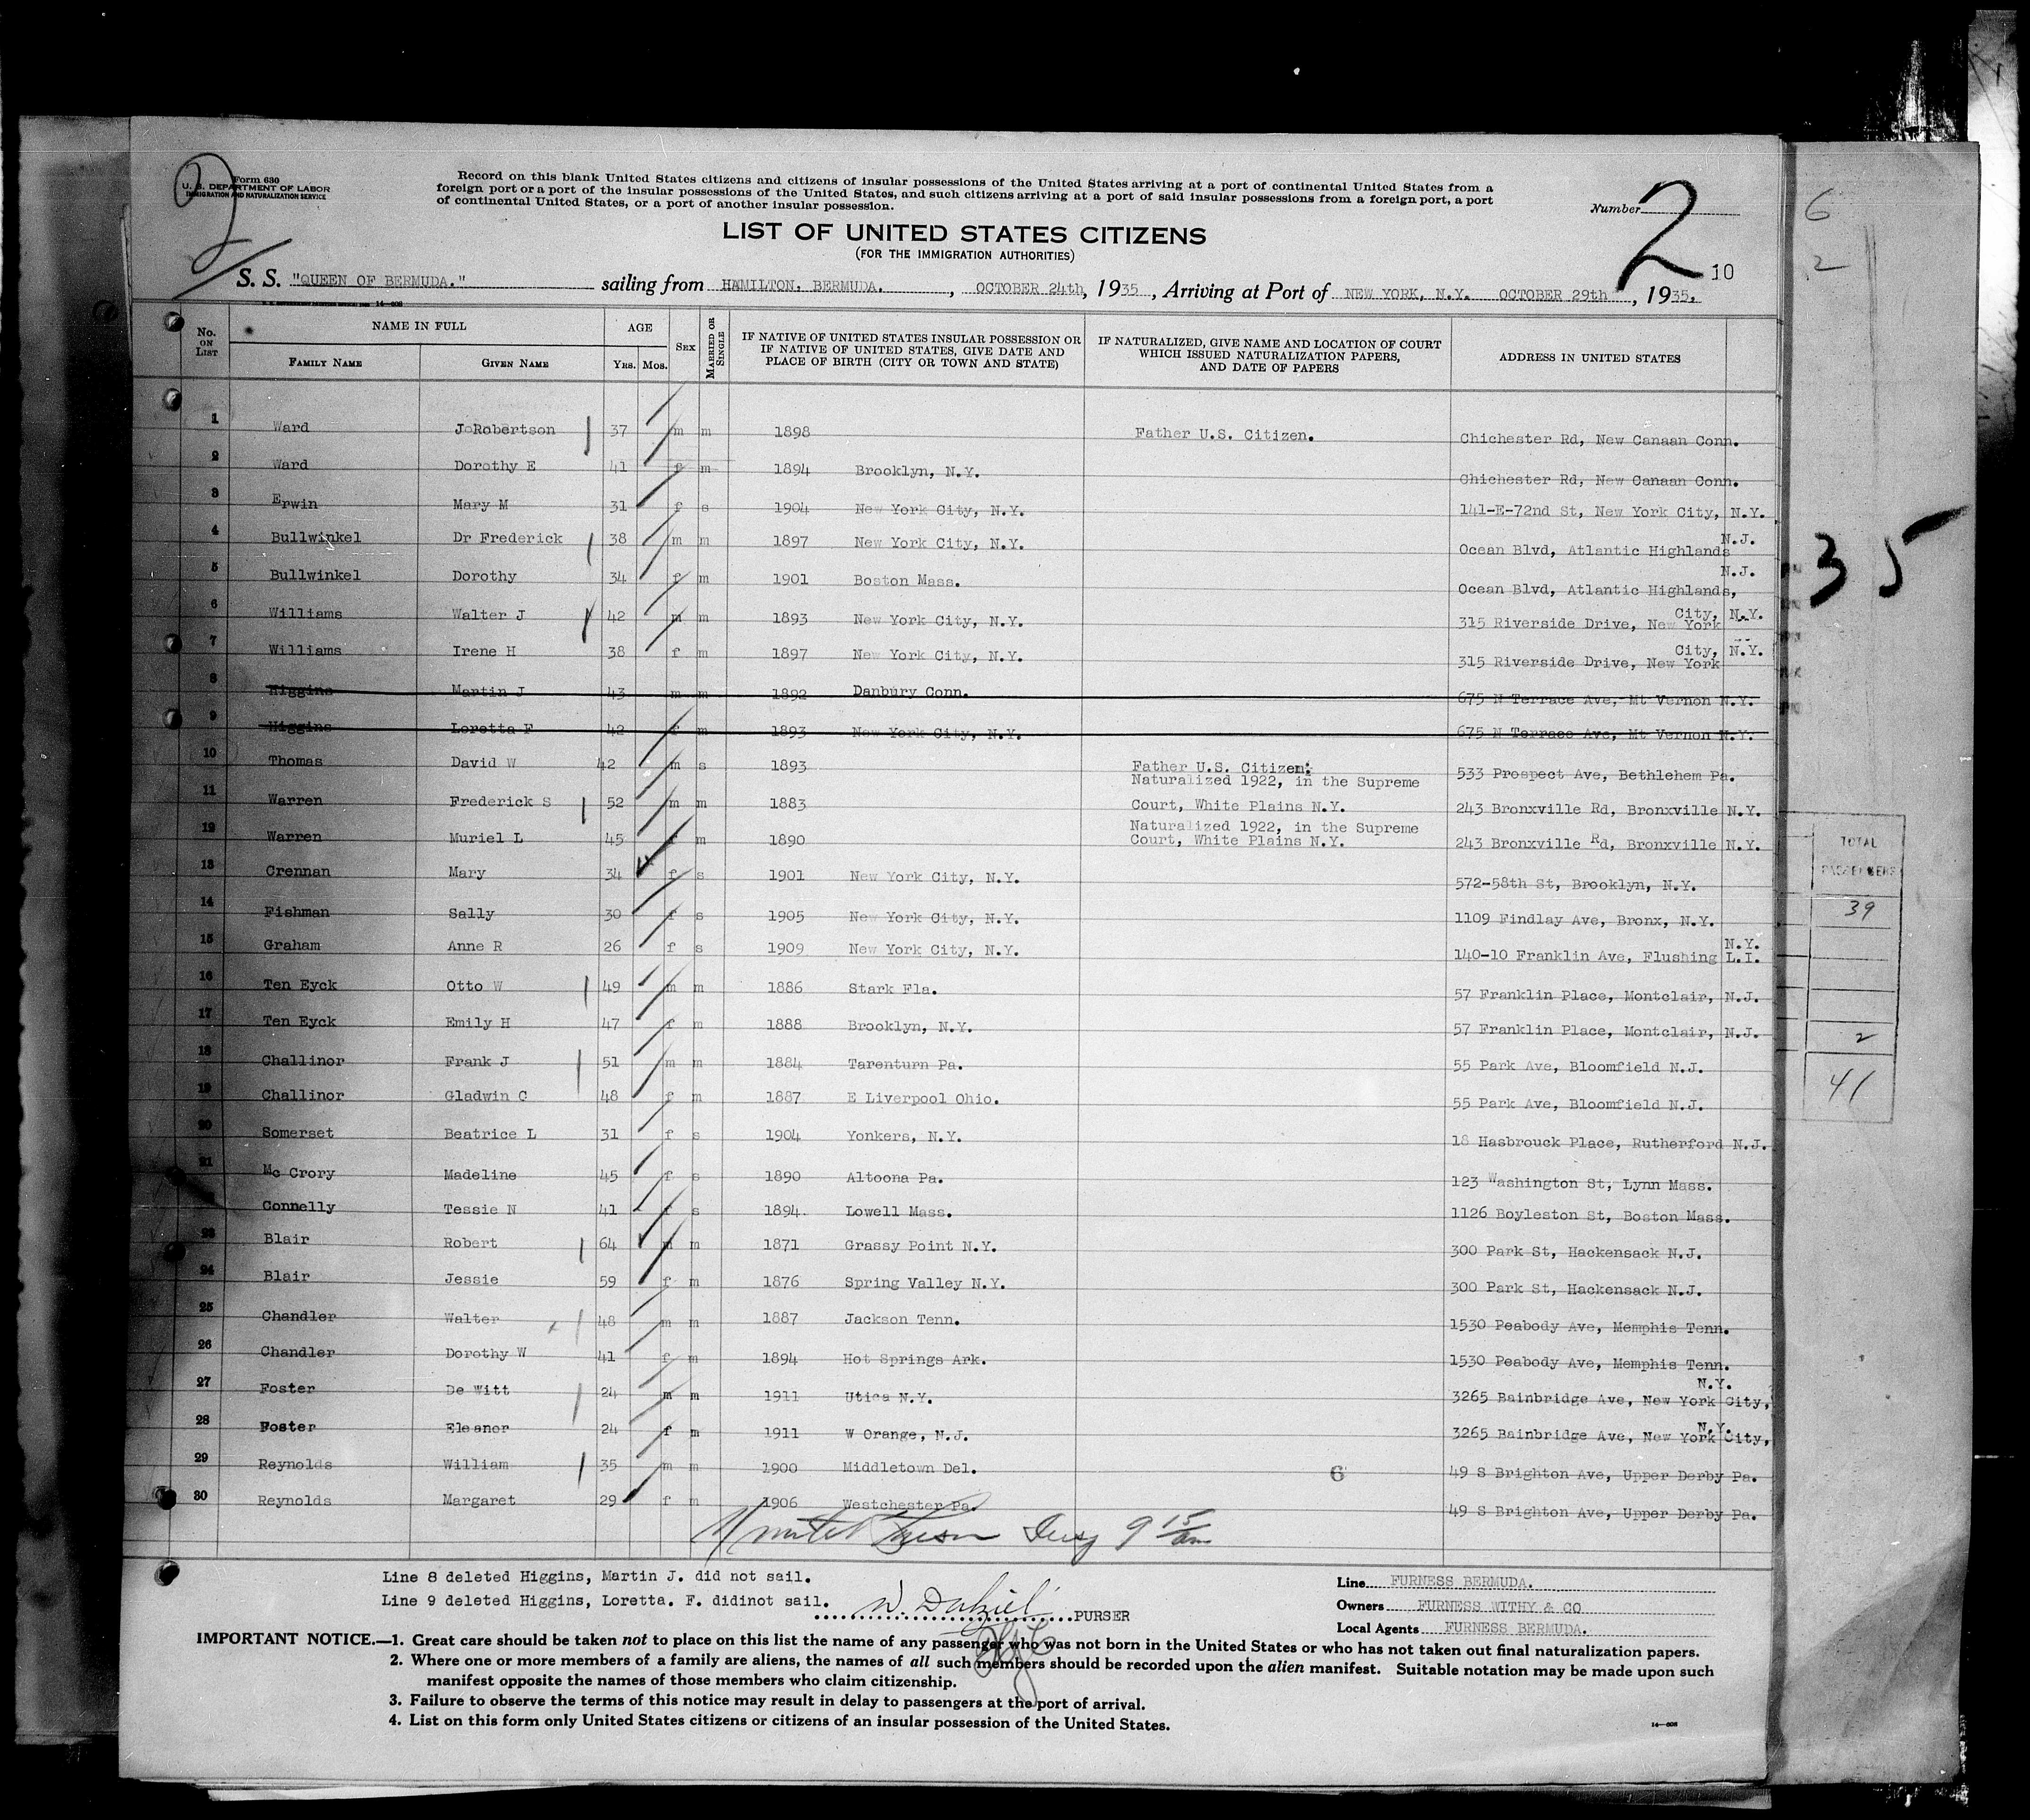 Form 630
U. S. DEPARTMENT OF LABOR
IMMIGRATION AND NATURALIZATION SERVICE
Record on this blank United States citizens and citizens of insular possessions of the United States arriving at a port of continental United States from a
foreign port or a port of the insular possessions of the United States, and such citizens arriving at a port of said insular possessions from a foreign port, a port
of continental United States, or a port of another insular possession.
Number 2
10
LIST OF UNITED STATES CITIZENS
(FOR THE IMMIGRATION AUTHORITIES)
S. S. "QUEEN OF BERMUDA." sailing from HAMILTON, BERMUDA. , OCTOBER 24th, 1935 , Arriving at Port of NEW YORK, N.Y. OCTOBER 29th , 1935.
No. ON LIST NAME IN FULL FAMILY NAME GIVEN NAME AGE YRS. MOS. SEX MARRIED OR SINGLE IF NATIVE OF UNITED STATES INSULAR POSSESSION OR IF NATIVE OF UNITED STATES, GIVE DATE AND PLACE OF BIRTH (CITY OR TOWN AND STATE) IF NATURALIZED, GIVE NAME AND LOCATION OF COURT WHICH ISSUED NATURALIZATION PAPERS, AND DATE OF PAPERS ADDRESS IN UNITED STATES
1 Ward J Robertson 37 m m 1898 Father U.S. Citizen. Chichester Rd, New Canaan Conn.
2 Ward Dorothy E 41 f m 1894 Brooklyn, N.Y. Chichester Rd, New Canaan Conn.
3 Erwin Mary M 31 f s 1904 New York City, N.Y. 141-E-72nd St, New York City, N.Y.
4 Bullwinkel Dr Frederick 38 m m 1897 New York City, N.Y. Ocean Blvd, Atlantic Highlands N.J.
5 Bullwinkel Dorothy 34 f m 1901 Boston Mass. Ocean Blvd, Atlantic Highlands, N.J.
6 Williams Walter J 42 m m 1893 New York City, N.Y. 315 Riverside Drive, New York City, N.Y.
7 Williams Irene H 38 f m 1897 New York City, N.Y. 315 Riverside Drive, New York City, N.Y.
8 Higgins Martin J 43 m m 1892 Danbury Conn. 675 N Terrace Ave, Mt Vernon N.Y.
9 Higgins Loretta F 42 f m 1893 New York City, N.Y. 675 N Terrace Ave, Mt Vernon N.Y.
10 Thomas David W 42 m s 1893 Father U.S. Citizen. 533 Prospect Ave, Bethlehem Pa.
11 Warren Frederick S 52 m m 1883 Naturalized 1922, in the Supreme Court, White Plains N.Y. 243 Bronxville Rd, Bronxville N.Y.
12 Warren Muriel L 45 f m 1890 Naturalized 1922, in the Supreme Court, White Plains N.Y. 243 Bronxville Rd, Bronxville N.Y.
13 Crennan Mary 34 f s 1901 New York City, N.Y. 572-58th St, Brooklyn, N.Y.
14 Fishman Sally 30 f s 1905 New York City, N.Y. 1109 Findlay Ave, Bronx, N.Y.
15 Graham Anne R 26 f s 1909 New York City, N.Y. 140-10 Franklin Ave, Flushing L.I. N.Y.
16 Ten Eyck Otto W 49 m m 1886 Stark Fla. 57 Franklin Place, Montclair, N.J.
17 Ten Eyck Emily H 47 f m 1888 Brooklyn, N.Y. 57 Franklin Place, Montclair, N.J.
18 Challinor Frank J 51 m m 1884 Tarenturn Pa. 55 Park Ave, Bloomfield N.J.
19 Challinor Gladwin C 48 f m 1887 E Liverpool Ohio. 55 Park Ave, Bloomfield N.J.
20 Somerset Beatrice L 31 f s 1904 Yonkers, N.Y. 18 Hasbrouck Place, Rutherford N.J.
21 Mc Crory Madeline 45 f s 1890 Altoona Pa. 123 Washington St, Lynn Mass.
Connelly Tessie N 41 f s 1894 Lowell Mass. 1126 Boyleston St, Boston Mass.
23 Blair Robert 64 m m 1871 Grassy Point N.Y. 300 Park St, Hackensack N.J.
24 Blair Jessie 59 f m 1876 Spring Valley N.Y. 300 Park St, Hackensack N.J.
25 Chandler Walter 48 m m 1887 Jackson Tenn. 1530 Peabody Ave, Memphis Tenn.
26 Chandler Dorothy W 41 f m 1894 Hot Springs Ark. 1530 Peabody Ave, Memphis Tenn.
27 Foster De Witt 24 m m 1911 Utica N.Y. 3265 Bainbridge Ave, New York City, N.Y.
28 Foster Eleanor 24 f m 1911 W Orange, N.J. 3265 Bainbridge Ave, New York City, N.Y.
29 Reynolds William 35 m m 1900 Middletown Del. 6 49 S Brighton Ave, Upper Derby Pa.
30 Reynolds Margaret 29 f m 1906 Westchester Pa. 49 S Brighton Ave, Upper Derby Pa.
9 15 am
Line 8 deleted Higgins, Martin J. did not sail.
Line 9 deleted Higgins, Loretta. F. didinot sail.
PURSER
Line FURNESS BERMUDA.
Owners FURNESS WITHY & CO
Local Agents FURNESS BERMUDA.
IMPORTANT NOTICE.—1. Great care should be taken not to place on this list the name of any passenger who was not born in the United States or who has not taken out final naturalization papers.
2. Where one or more members of a family are aliens, the names of all such members should be recorded upon the alien manifest. Suitable notation may be made upon such
manifest opposite the names of those members who claim citizenship.
3. Failure to observe the terms of this notice may result in delay to passengers at the port of arrival.
4. List on this form only United States citizens or citizens of an insular possession of the United States.
14—608
6
2
35
TOTAL
PASSENGERS
39
2
41